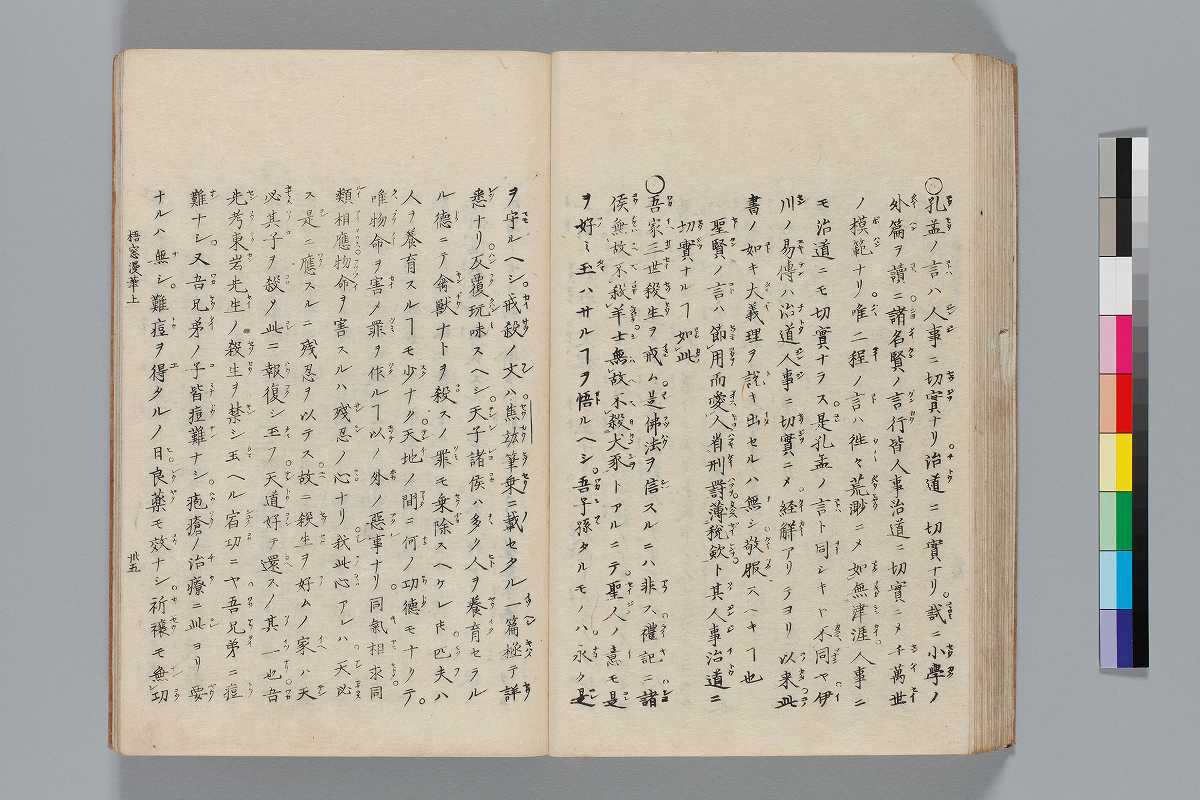 〇孔孟ノ言ハ人事ニ切實ナリ治道ニ切實ナリ。試ニ小學ノ
外篇ヲ讀ニ諸名賢ノ言行皆人事治道ニ切實ニメ千萬世
ノ模範ナリ唯二程ノ言ハ徃々荒渺ニメ如無津涯人事ニ
モ治道ニモ切實ナラス是孔孟ノ言ト同シキヤ不同ヤ伊
川ノ易傳ハ治道人事ニ切實ニメ経解アリテヨリ以来此
書ノ如キ大義理ヲ説キ出セルハ無シ敬服スヘキヿ也
聖賢ノ言ハ節用而愛人省刑罸薄税歛ト其人事治道ニ
切實ナルヿ如此
〇吾家三世殺生ヲ戒ム是佛法ヲ信スルニハ非ス禮記ニ諸
侯無故不殺羊士無故不殺犬豕トアルニテ聖人ノ意モ是
ヲ好ミ玉ハサルヿヲ悟ルヘシ吾子孫タルモノハ永ク是
ヲ守ルヘシ戒殺ノ文ハ焦竑筆乗ニ載セタル一篇極テ詳
悉ナリ反覆玩味スヘシ天子諸侯ハ多ク人ヲ養育セラル
ル德ニテ禽獸ナトヲ殺スノ罪モ乗除スヘケレ𪜈匹夫ハ
人ヲ養育スルヿモ少ナク天地ノ間ニ何ノ功德モナクテ
唯物命ヲ害メ罪ヲ作ルヿ以ノ外ノ惡事ナリ同氣相求同
類相應物命ヲ害スルハ殘忍ノ心ナリ我此心アレハ天必
ス是ニ應スルニ残忍ヲ以テス故ニ殺生ヲ好ムノ家ハ天
必其子ヲ殺メ此ニ報復シ玉フ天道好テ還スノ其一也吾
先考東岩先生ノ殺生ヲ禁シ玉ヘル宿功ニヤ吾兄弟ニ痘
難ナシ又吾兄弟ノ子皆痘難ナシ疱瘡ノ治療ニ此ヨリ要
ナルハ無シ難痘ヲ得タルノ日良藥モ效ナシ祈禳モ無功
梧窓漫筆上
卅五